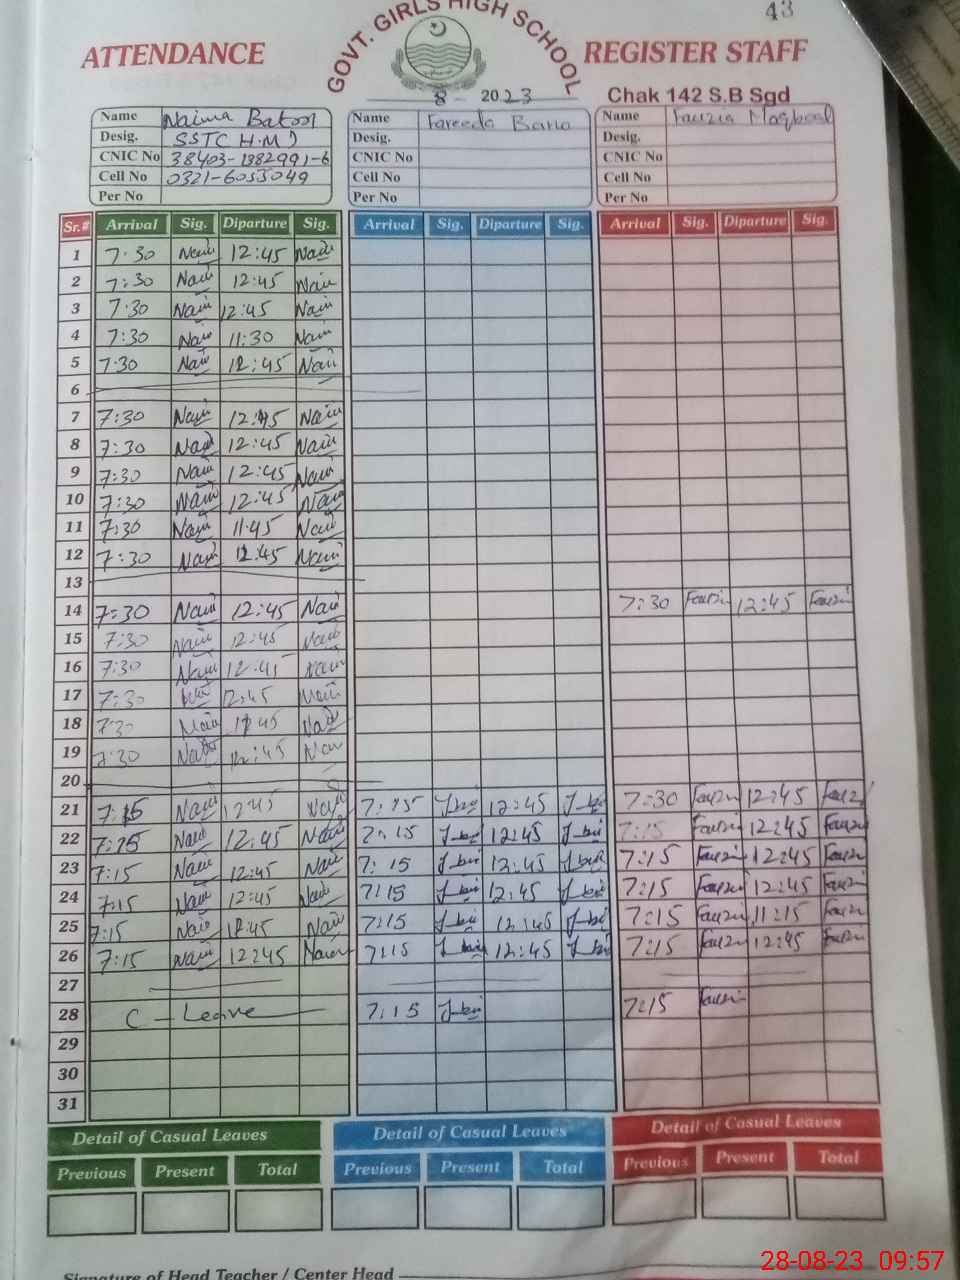 43
GOVT. GIRLS HIGH SCHOOL
ATTENDANCE REGISTER STAFF
8 - 2023
Chak 142 S.B Sgd
Name Naima Batool Name Fareeda Bano Name Fauzia Maqbool
Desig. SST(H.M) Desig. Desig.
CNIC No 38403-1382991-6 CNIC No CNIC No
Cell No 0321-6055049 Cell No Cell No
Per No Per No Per No
Sr.# Arrival Sig. Diparture Sig. Arrival Sig. Diparture Sig. Arrival Sig. Diparture Sig.
1 7:30 Naii 12:45 Naii
2 7:30 Naii 12:45 Naii
3 7:30 Naii 12:45 Naii
4 7:30 Naii 11:30 Naii
5 7:30 Naii 12:45 Naii
6
7 7:30 Naii 12:45 Naii
8 7:30 Naii 12:45 Naii
9 7:30 Naii 12:45 Naii
10 7:30 Naii 12:45 Naii
11 7:30 Naii 11:45 Naii
12 7:30 Naii 12:45 Naii
13
14 7:30 Naii 12:45 Naii 7:30 Fauzi 12:45 Fauzi
15 7:30 Naii 12:45 Naii
16 7:30 Naii 12:45 Naii
17 7:30 Naii 12:45 Naii
18 7:30 Naii 12:45 Naii
19 7:30 Naii 12:45 Naii
20
21 7:15 Naii 12:45 Naii 7:15 12:45 7:30 Fauzi 12:45 Fauzi
22 7:15 Naii 12:45 Naii 7:15 12:45 7:15 Fauzi 12:45 Fauzi
23 7:15 Naii 12:45 Naii 7:15 12:45 7:15 Fauzi 12:45 Fauzi
24 7:15 Naii 12:45 Naii 7:15 12:45 7:15 Fauzi 12:45 Fauzi
25 7:15 Naii 12:45 Naii 7:15 12:45 7:15 Fauzi 11:15 Fauzi
26 7:15 Naii 12:45 Naii 7:15 12:45 7:15 Fauzi 12:45 Fauzi
27
28 C - Leave 7:15 7:15 Fauzi
29
30
31
Detail of Casual Leaves Detail of Casual Leaves Detail of Casual Leaves
Previous Present Total Previous Present Total Previous Present Total
Signature of Head Teacher / Center Head
28-08-23 09:57